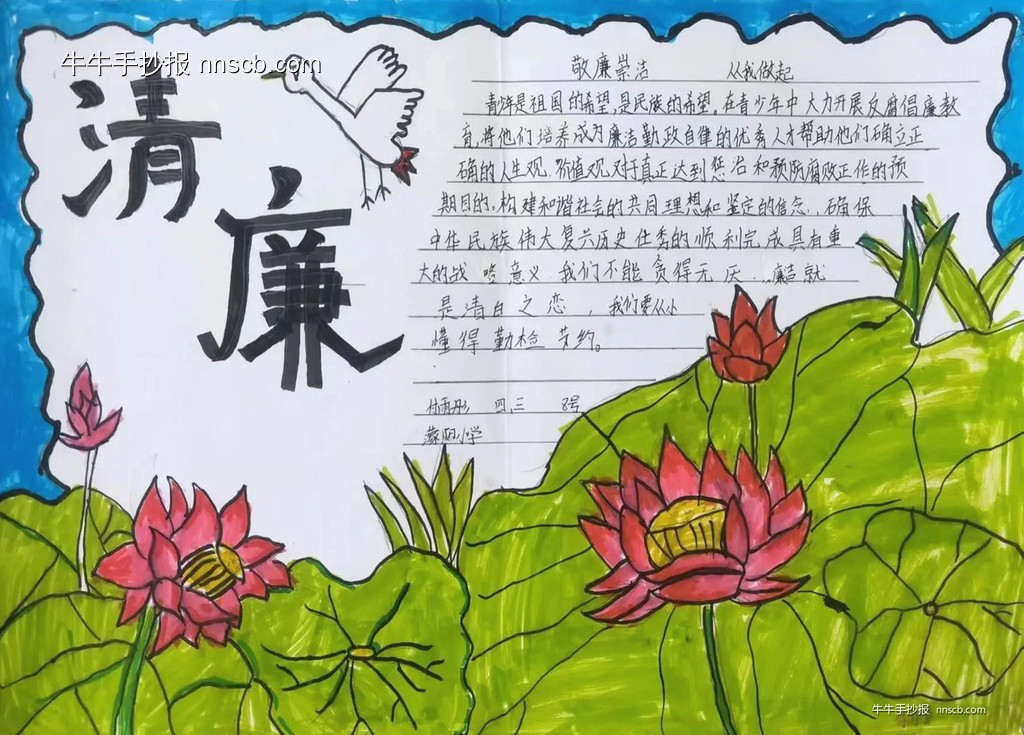 牛牛手抄报 nnscb.com
清
廉
敬廉崇洁 从我做起
青少年是祖国的希望,是民族的希望。在青少年中大力开展反腐倡廉教
育,将他们培养成为廉洁勤政自律的优秀人才帮助他们确立正
确的人生观、价值观,对于真正达到惩治和预防腐败正作的预
期目的,构建和谐社会的共同理想和坚定的信念,确保
中华民族伟大复兴历史任务的顺利完成具有重
大的战 意义 我们不能贪得无厌 廉洁就
是清白之恋,我们要从小
懂得勤检节约。
四、三 8号
小学
牛牛手抄报 nnscb.com